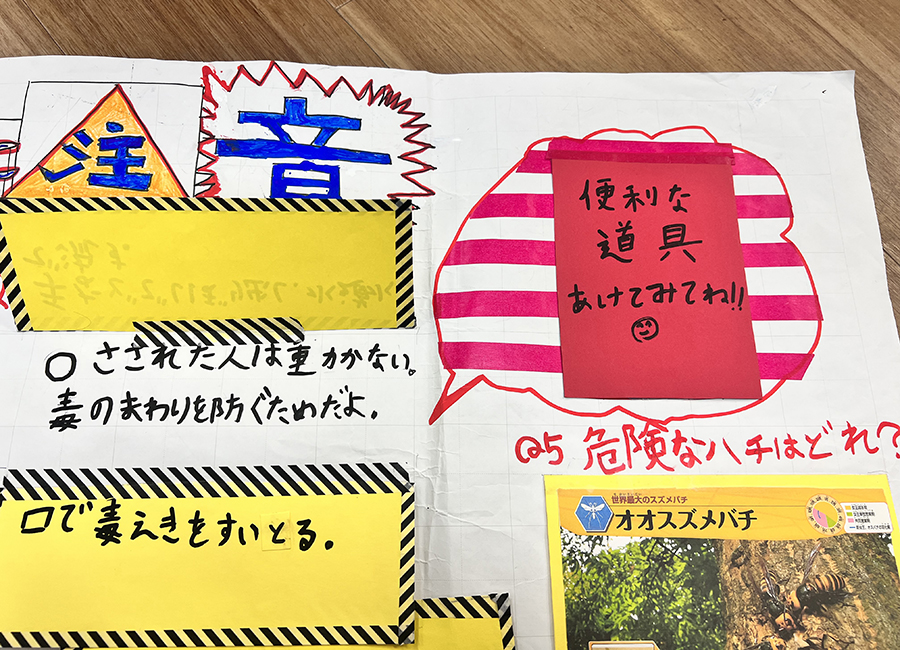 注
音
で流す。
手などでしぼり出し、水道水
○ さされた人は重かかない。
毒のまわりを防ぐためだよ。
口で毒えきをすいとる。
便利な
道具
あけてみてね!!
Q5 危険なハチはどれ?
世界最大のスズメバチ
オオスズメバチ